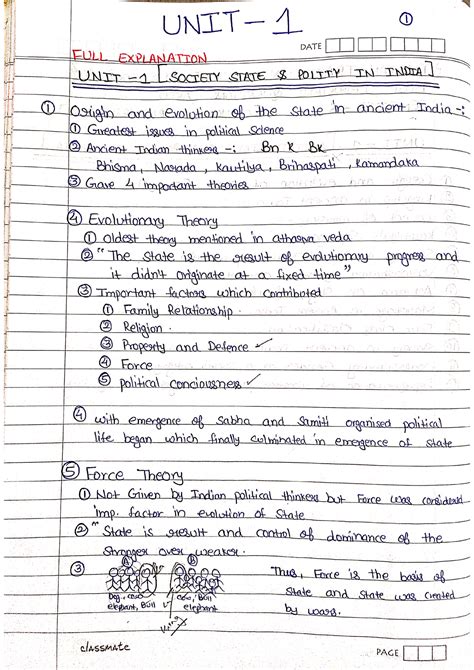 UNIT-1
①
DATE
FULL EXPLANATION
UNIT-1 [SOCIETY STATE & POLITY IN INDIA]
① Origin and evolution of the state in ancient India-:
① Greatest issues in political science
② Ancient Indian thinkers -: Bn K Bk
Bhisma, Narada, Kautilya, Brihaspati, Kamandaka
③ Gave 4 important theories
④ Evolutionary Theory
① Oldest theory mentioned in atharva veda
② "The state is the result of evolutionary progress and
it didn't originate at a fixed time"
③ Important factors which contributed
① Family Relationship.
② Religion.
③ Property and Defence ✓
④ Force
⑤ political conciousness ✓
④ with emergence of Sabha and Samiti organised political
life began which finally culminated in emergence of state
⑤ Force Theory
① Not Given by Indian political thinkers but Force was considered
imp. factor in evolution of State
② "State is result and control of dominance of the
Stronger over weaker.
③ A B Thus, Force is the basis of
Dog, cow cow, Bull State and state was created
elephant, Bull elephant by wars.
King
classmate
PAGE